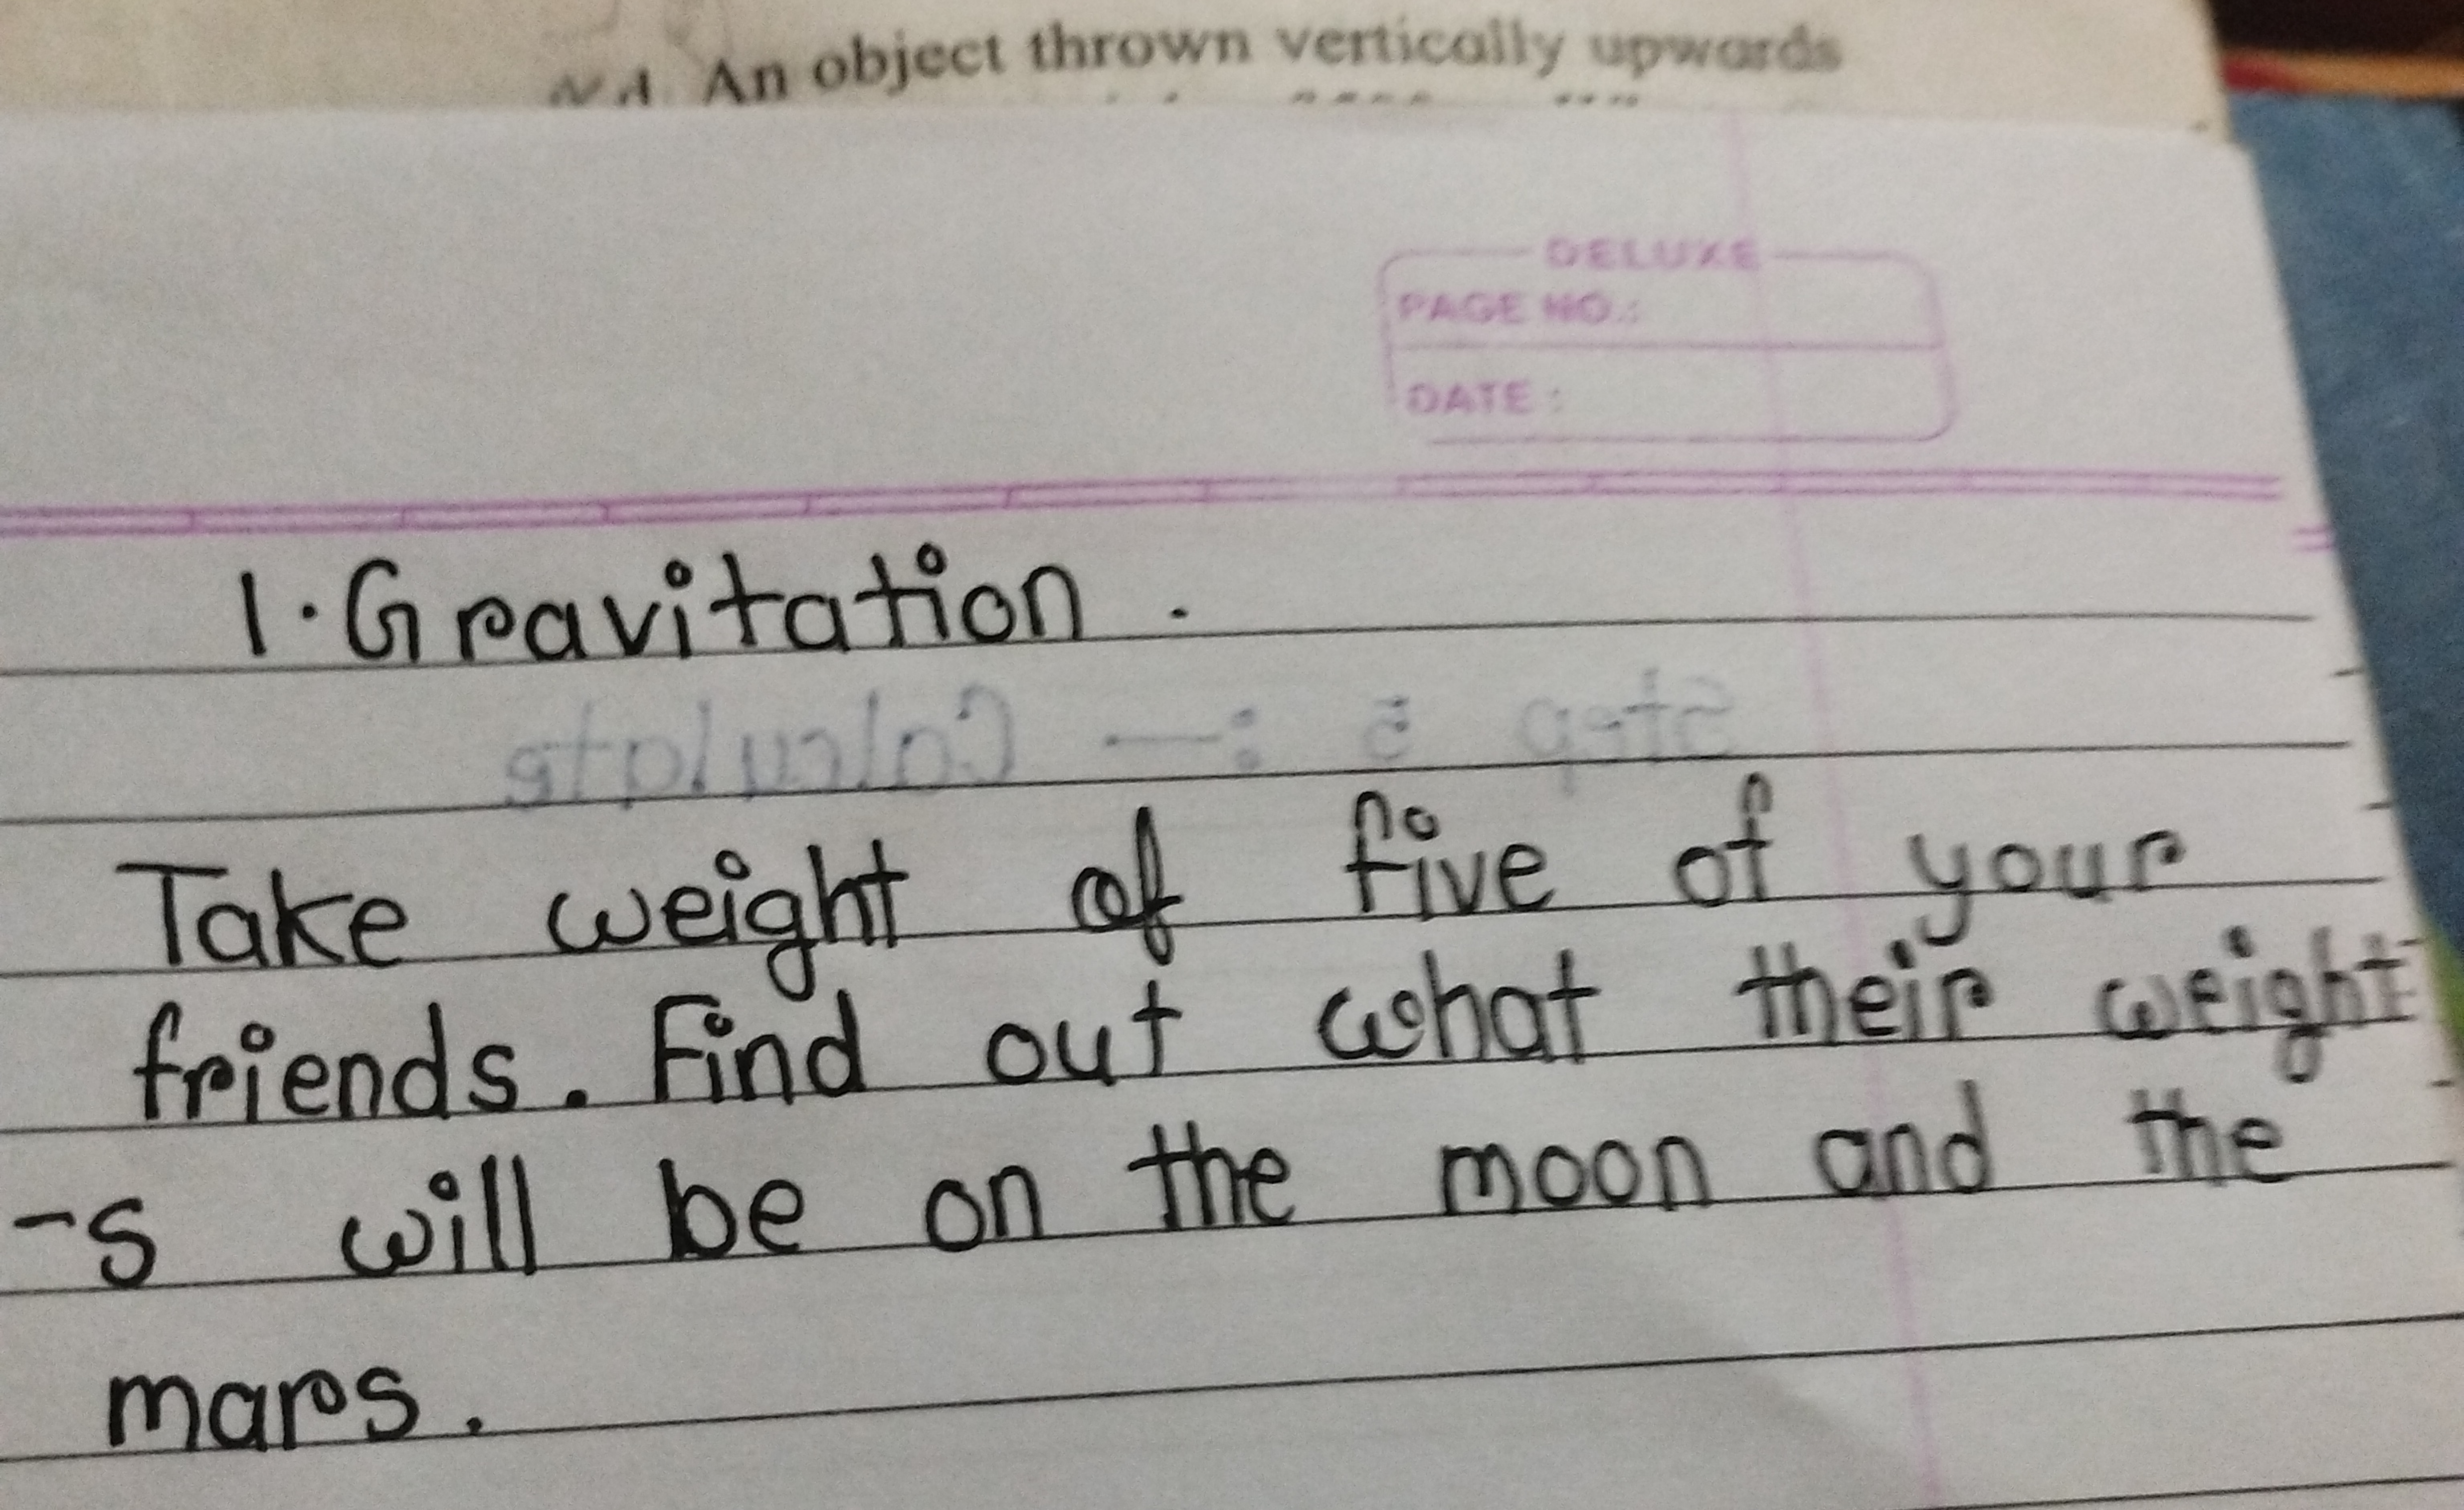 An object thrown vertically upwards
DELUXE
PAGE NO.:
DATE :
1. Gravitation.
Step 5 :— Calculate
Take weight of five of your
friends. Find out what their weight
-s will be on the moon and the
mars.